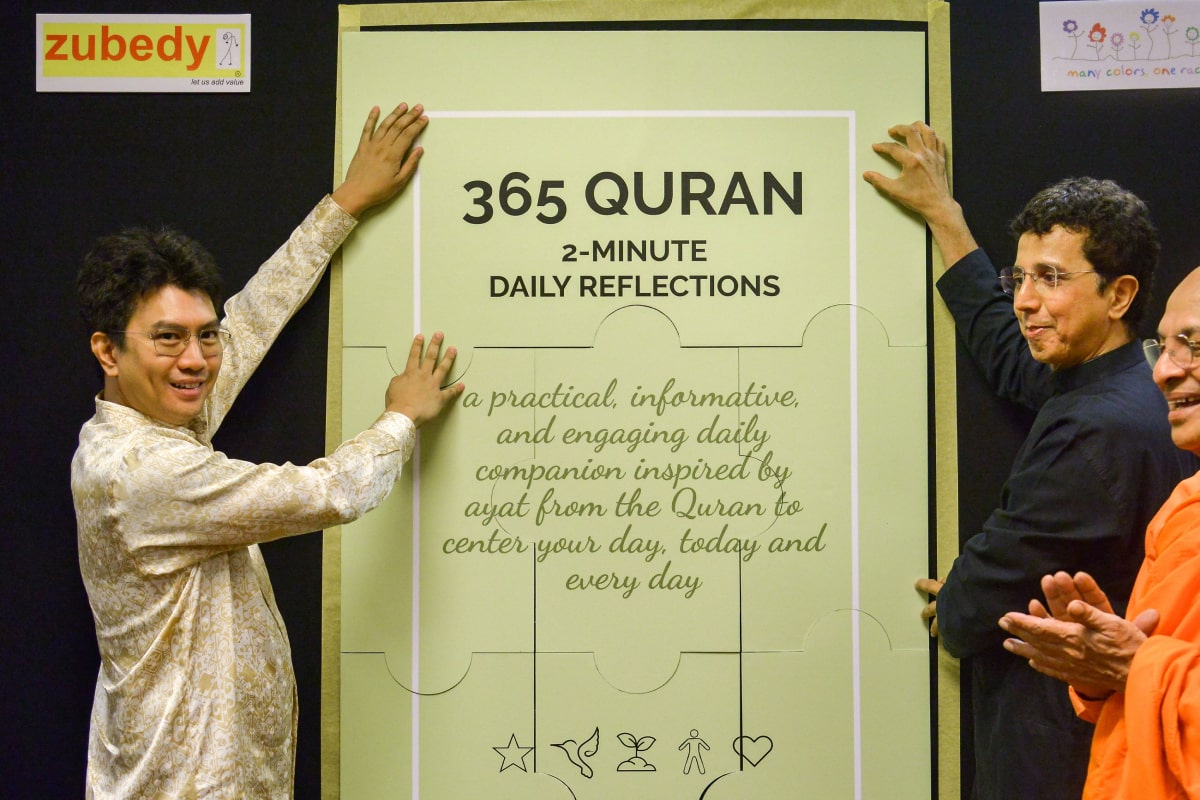 zubedy
let us add value
many colors, one rac
365 QURAN
2-MINUTE
DAILY REFLECTIONS
a practical, informative,
and engaging daily
companion inspired by
ayat from the Quran to
center your day, today and
every day